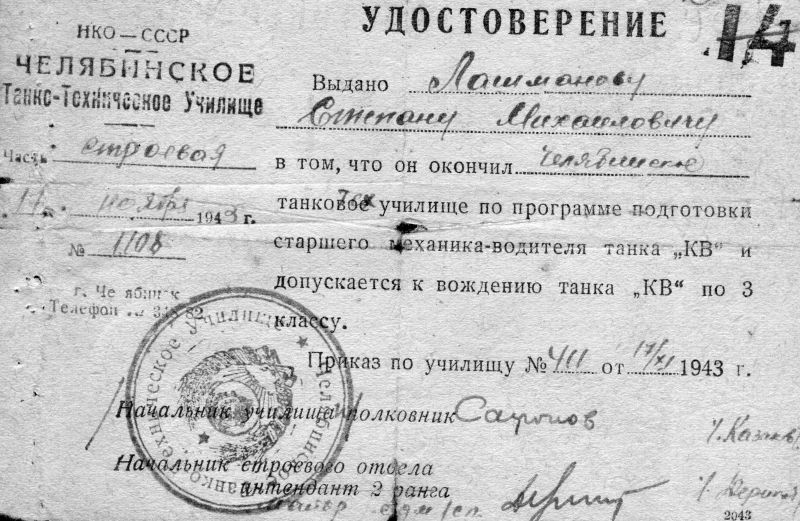 УДОСТОВЕРЕНИЕ
14
НКО—СССР
ЧЕЛЯБИНСКОЕ
Танко-Техническое Училище
Часть строевая
17 ноября 1943 г.
№ 1108
г. Челябинск
Телефон №
Выдано Лашманову
Степану Михаиловичу
в том, что он окончил Челябинское
танковое тех училище по программе подготовки
старшего механика-водителя танка „КВ“ и
допускается к вождению танка „КВ“ по 3
классу.
Приказ по училищу № 411 от 17/XI 1943 г.
Начальник училища полковник Сафонов
Начальник строевого отдела
интендант 2 ранга
майор адм/сл.
/. Казаков
2043
Челябинское танко-техническое училище